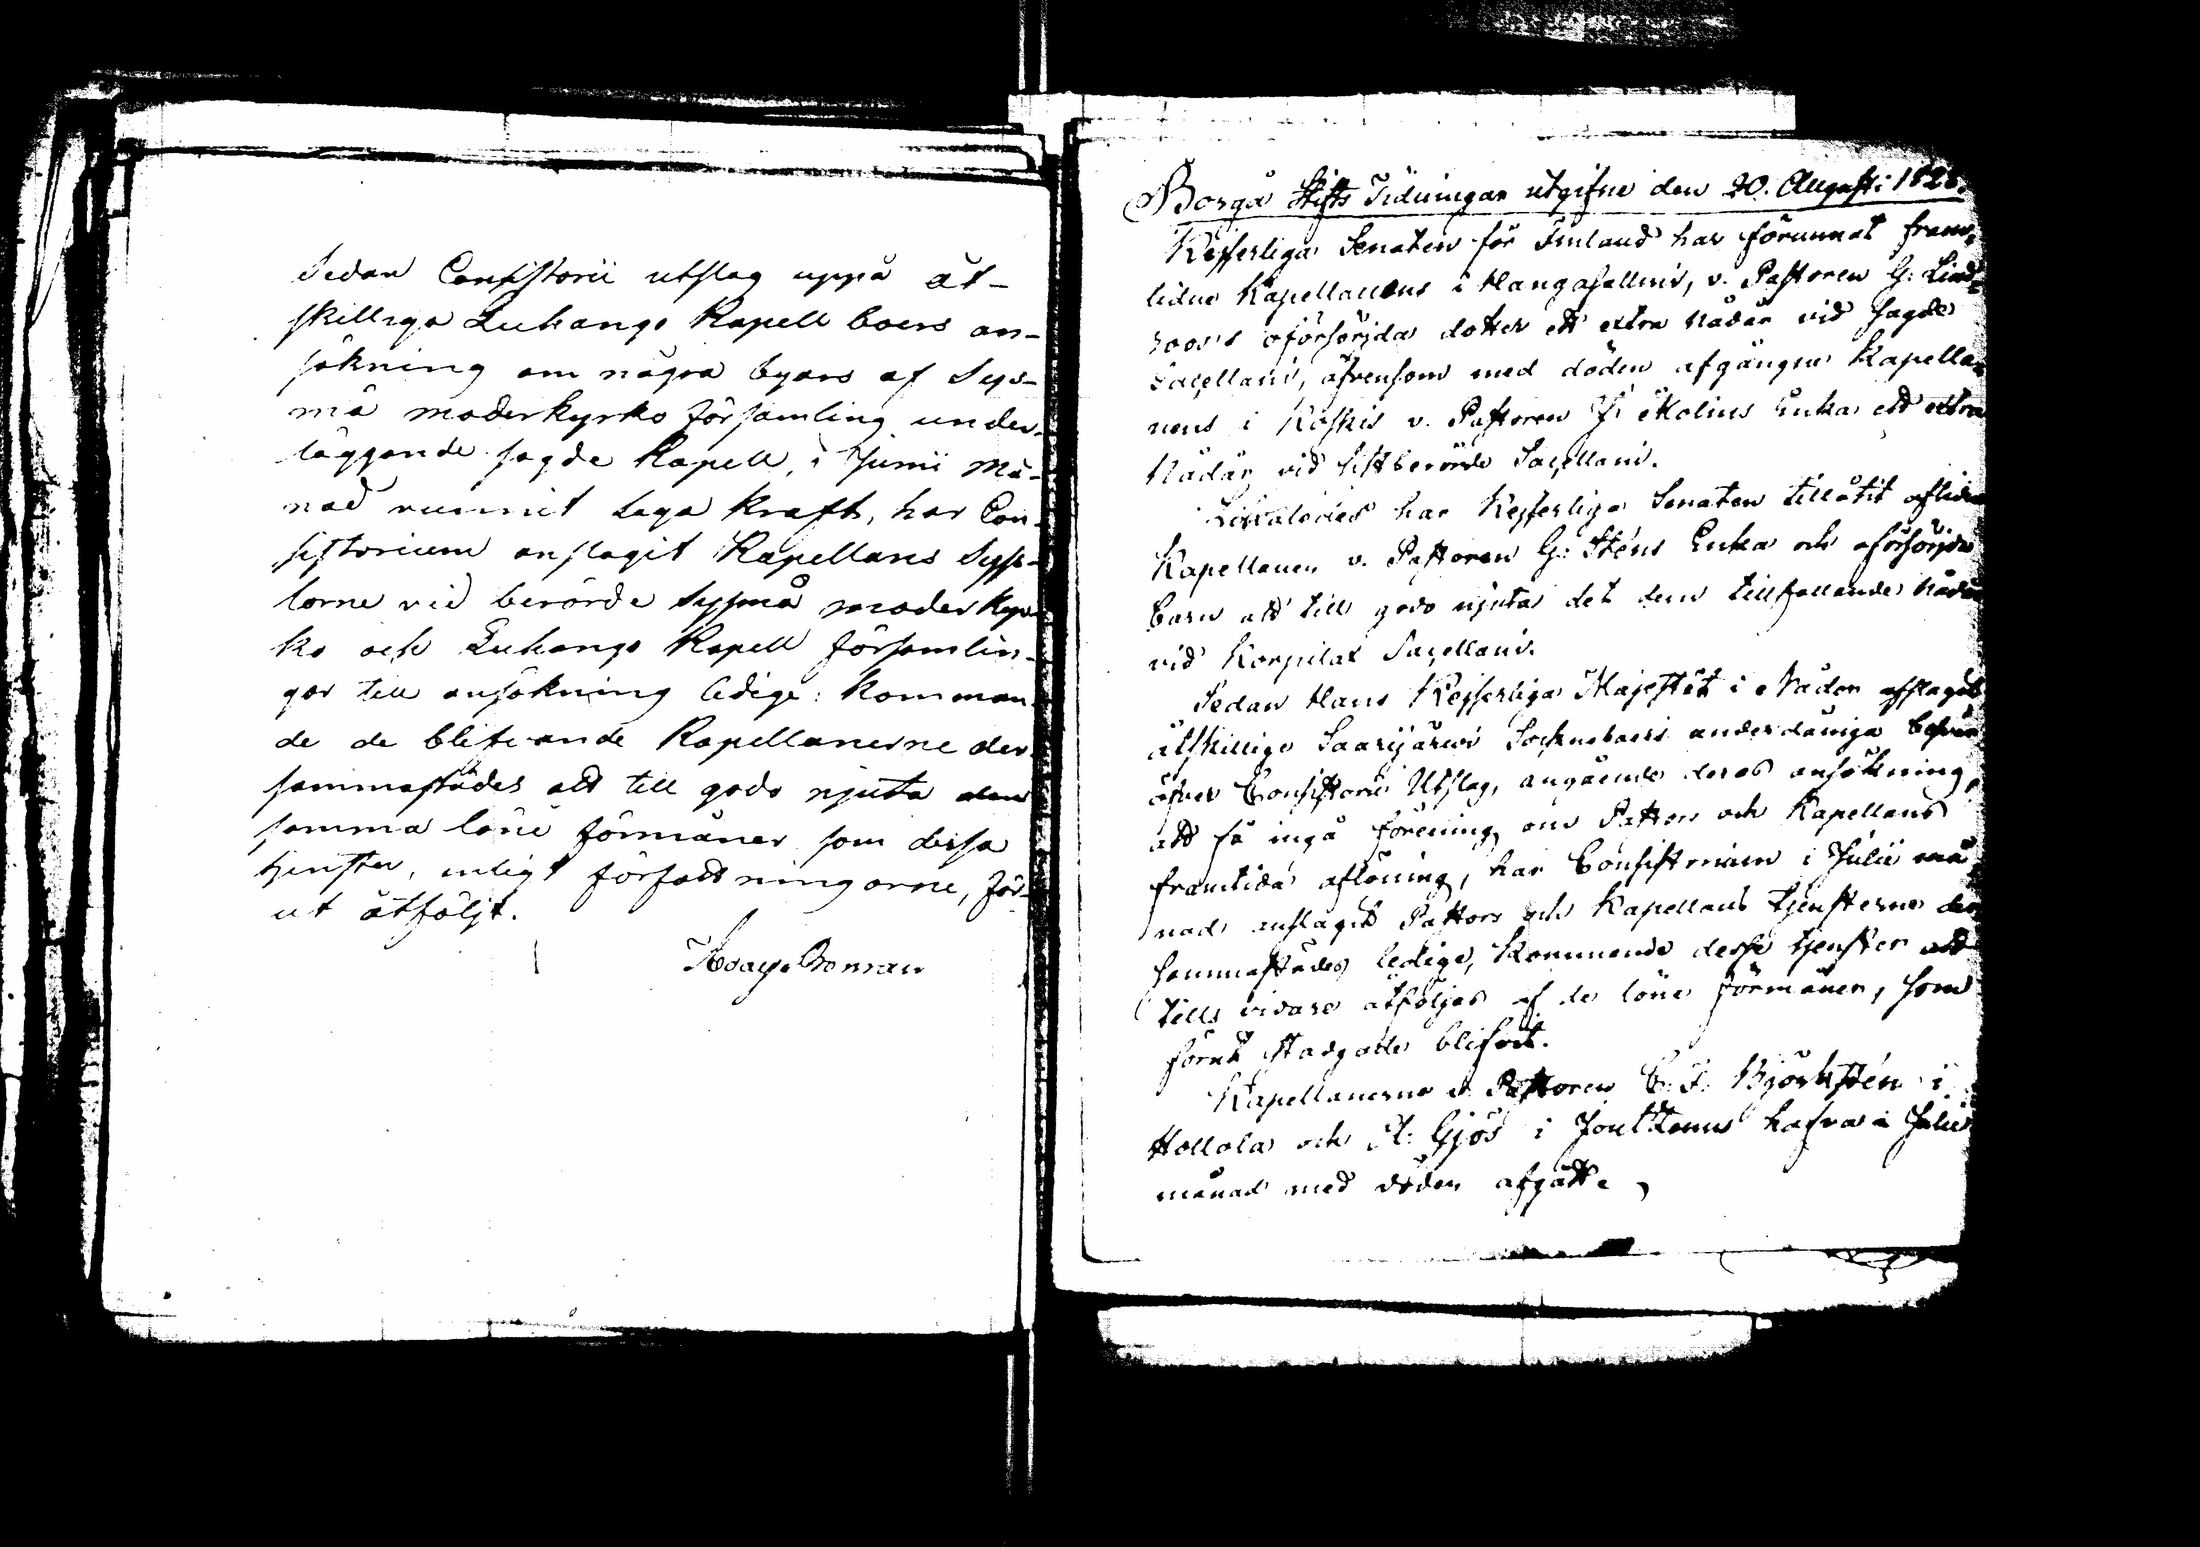 Sedan Consistorii utslag uppå åt-
skillige Luhango Kapell boers an-
sökning om några byars af Sys-
mä moderkyrko församling under-
läggande sagde Kapell, i Junii må-
nad vunnit laga kraft, har Con-
sistorium anslagit Kapellans Syss-
lorne vid berörde Sysmä moderkyr-
ko och Luhango Kapell församlin-
gar till ansökning ledige: komman-
de de blifvande Kapellanerne der-
sammastädes att till godo njuta
samma löne förmåner som dessa
tjenster, enligt författningarne, för-
ut åtföljt.
Borgå Stifts Tidningar utgifne den 20. Augusti 1828.
Kejserliga Senaten för Finland har förunnat fram-
lidne Kapellanens i Kangasalmi, v. Pastoren G: Lind-
roos's oförsörjda dotter ett extra Nådår vid sagde
Sacellanі, äfvensom med döden afgångne Kapella-
nens i Koskis v. Pastoren F: Molins Enka ett extra
Nådår vid sistberörde Sacellani.
Likaledes har Kejserliga Senaten tillåtit aflidne
Kapellanen v. Pastoren G: Sténs Enka och oförsörjde
barn att till godo njuta det dem tillfallande Nådår
vid Korpilax Sacellani.
Sedan Hans Kejserliga Majestät i Nåder afslagit
åtskillige Saarijärvi Sockneboers underdåniga besvär
öfver Consistorii Utslag, angående deras ansökning,
att få ingå förening om Pastors och Kapellans
framtida aflöning, har Consistorium i Julii må-
nad anslagit Pastors och Kapellans tjensterne der
sammastädes ledige, kommande desse tjenster att
tills vidare åtföljas af de löne förmåner, som
förut stadgade blifvit.
Kapellanerne v. Pastoren C. F. Björkstén i
Hollola och A: Gjös i Joutsenus hafva i Julii
månad med döden afgått.